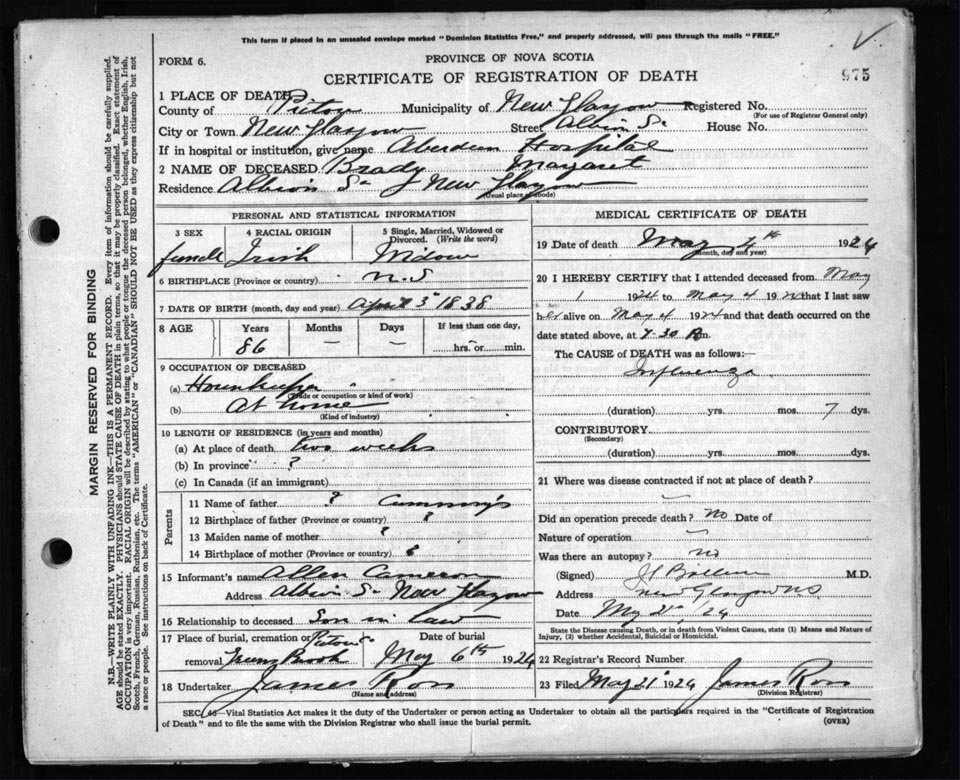 This form if placed in an unsealed envelope marked "Dominion Statistics Free," and properly addressed, will pass through the mails "FREE."
FORM 6.
PROVINCE OF NOVA SCOTIA
975
CERTIFICATE OF REGISTRATION OF DEATH
1 PLACE OF DEATH
County of Pictou Municipality of New Glasgow Registered No.
(For use of Registrar General only)
City or Town New Glasgow Street Albion St House No.
If in hospital or institution, give name Aberdeen Hospital
2 NAME OF DECEASED Brady Margaret
Residence Albion St New Glasgow
(Usual place of abode)
PERSONAL AND STATISTICAL INFORMATION
3 SEX 4 RACIAL ORIGIN 5 Single, Married, Widowed or Divorced. (Write the word)
female Irish Widow
6 BIRTHPLACE (Province or country) N.S
7 DATE OF BIRTH (month, day and year) April 3 1838
8 AGE Years Months Days If less than one day,
86 — — hrs. or min.
9 OCCUPATION OF DECEASED
(a) Housekeeper
(Trade or occupation or kind of work)
(b) At home
(Kind of industry)
10 LENGTH OF RESIDENCE (in years and months)
(a) At place of death two weeks
(b) In province ?
(c) In Canada (if an immigrant)
Parents
11 Name of father ? Cummings
12 Birthplace of father (Province or country) ?
13 Maiden name of mother ?
14 Birthplace of mother (Province or country) ?
15 Informant's name Allen Cameron
Address Albion St New Glasgow
16 Relationship to deceased Son in law
17 Place of burial, cremation or removal Pictou Co Date of burial
Brook May 6th 1924
18 Undertaker James Ross
(Name and address)
MEDICAL CERTIFICATE OF DEATH
19 Date of death May 4th 1924
(month, day and year)
20 I HEREBY CERTIFY that I attended deceased from May
1 1924 to May 4 1924 that I last saw
her alive on May 4 1924 and that death occurred on
date stated above, at 7.30 P.m.
The CAUSE of DEATH was as follows:—
Influenza
(duration) yrs. mos. 7 dys.
CONTRIBUTORY
(Secondary)
(duration) yrs. mos. dys.
21 Where was disease contracted if not at place of death?
—
Did an operation precede death? no Date of
Nature of operation —
Was there an autopsy? no
(Signed) M.D.
Address New Glasgow NS
Date May 21, 24
State the Disease causing Death, or in death from Violent Causes, state (1) Means and Nature of Injury, (2) whether Accidental, Suicidal or Homicidal.
22 Registrar's Record Number
23 Filed May 21st 1924 James Ross
(Division Registrar)
SEC. 40—Vital Statistics Act makes it the duty of the Undertaker or person acting as Undertaker to obtain all the particulars required in the "Certificate of Registration
of Death" and to file the same with the Division Registrar who shall issue the burial permit.
(OVER)
MARGIN RESERVED FOR BINDING
N.B.—WRITE PLAINLY WITH UNFADING INK—THIS IS A PERMANENT RECORD. Every item of information should be carefully supplied.
AGE should be stated EXACTLY. PHYSICIANS should STATE CAUSE OF DEATH in plain terms, so that it may be properly classified. Exact statement of
OCCUPATION is very important. RACIAL ORIGIN will be described by stating to what people or tongue the deceased person belonged, whether English, Irish,
Scotch, French, German, Russian, Ruthenian, etc. The terms "AMERICAN" or "CANADIAN" SHOULD NOT BE USED as they express citizenship but not
a race or people. See instructions on back of Certificate.